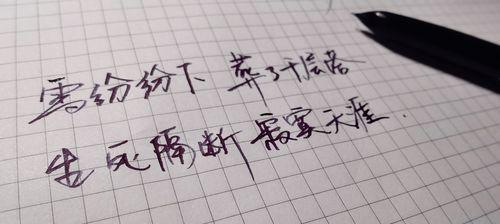 雪纷纷下 葬了十层
生死隔断 寂寞天涯.